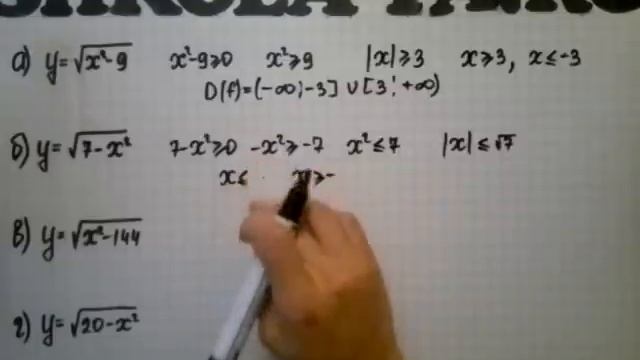 а) y=√x²-9 x²-9≥0 x²≥9 |x|≥3 x≥3, x≤-3
D(f)=(-∞;-3]∪[3;+∞)
б) y=√7-x² 7-x²≥0 -x²≥-7 x²≤7 |x|≤√7
x≤ x≥-
в) y=√x²-144
г) y=√20-x²